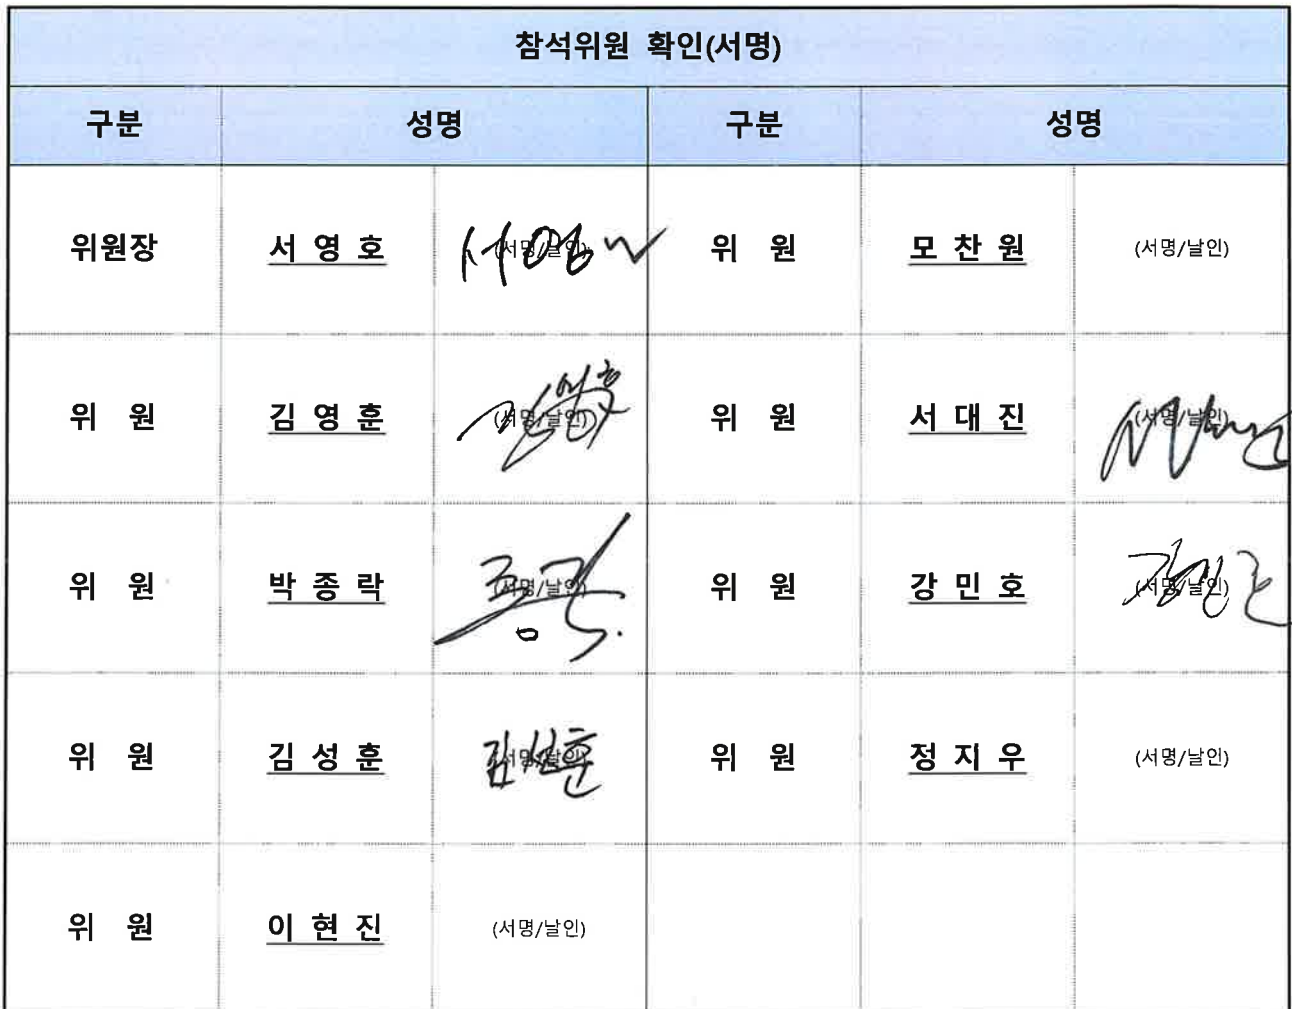 참석위원 확인(서명)
구분 성명 구분 성명
위원장 서 영 호 (서명/날인) 서영 위 원 모 찬 원 (서명/날인)
위 원 김 영 훈 (서명/날인) 위 원 서 대 진 (서명/날인)
위 원 박 종 락 (서명/날인) 종락 위 원 강 민 호 (서명/날인)
위 원 김 성 훈 (서명/날인) 김성훈 위 원 정 지 우 (서명/날인)
위 원 이 현 진 (서명/날인)